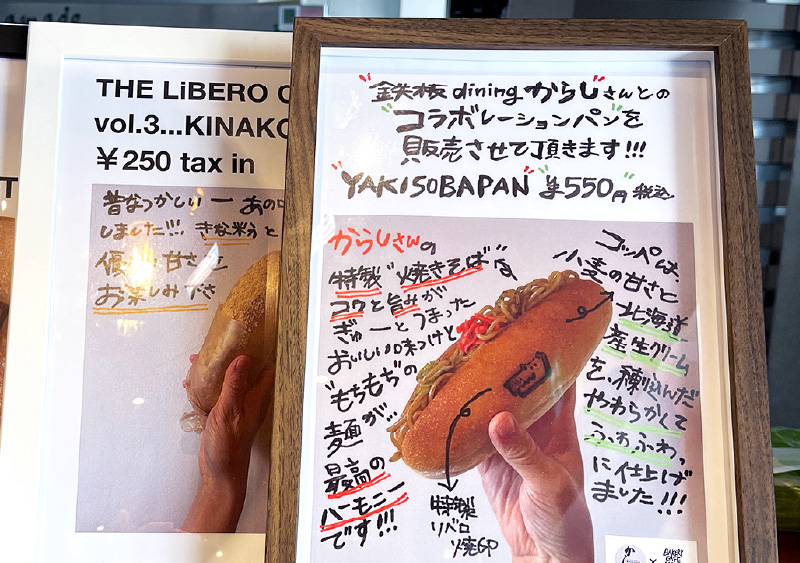 THE LiBERO
vol.3...KINAKO
￥250 tax in
昔なつかしいー あの
しました!!! きな粉と
優 甘さを
お楽しみ下さ
"鉄板diningからし"さんとの
"コラボレーションパン"を
販売させて頂きます!!!
"YAKISOBAPAN" ¥550円 税込
からしさんの
特製"焼きそば"で
コクと旨みが
ぎゅーとつまった
おいしい味つけと
"もちもち"の
麺が...
最高の
ハーモニー
です!!!
コッペは、
小麦の甘さと
北海道
産生クリーム
を、練り込んだ
やわらかくて
ふわふわっ
に仕上げ
ました!!!
特製
リベロ
焼印
か
×
BAKERY
CAFE